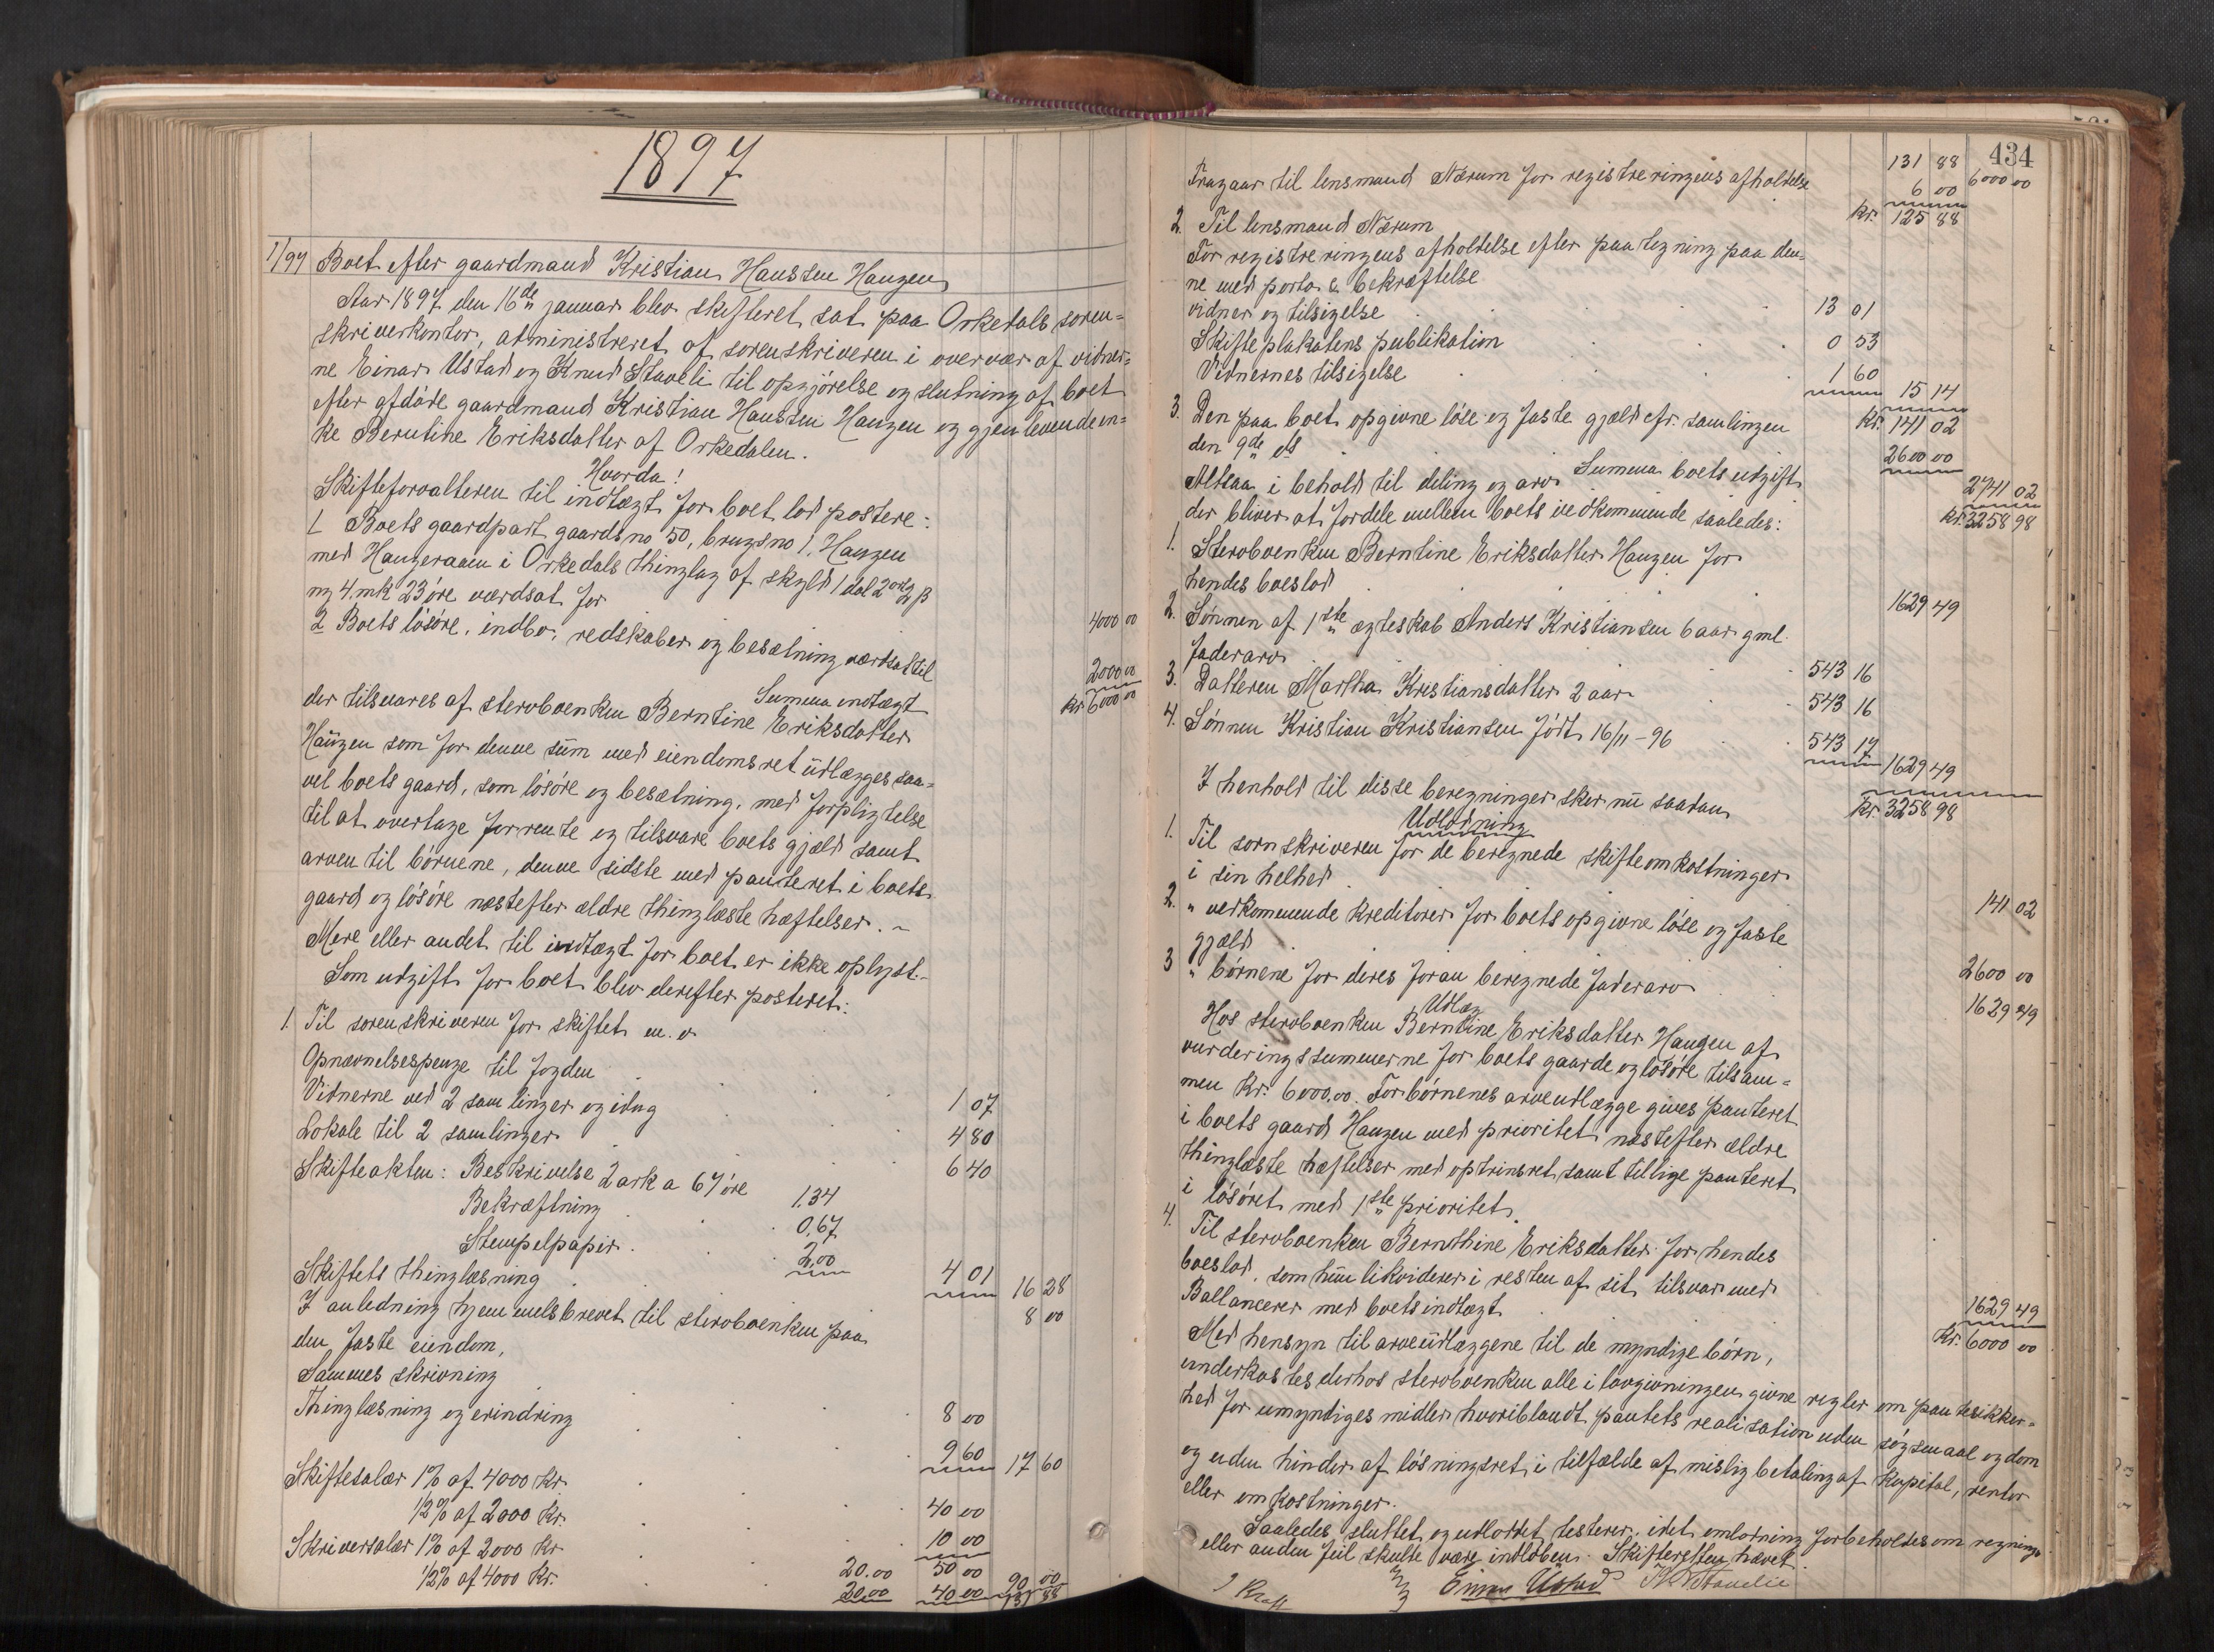 1897
1/97 Boet efter gaardmand Kristian Hansen Haugen
Aar 1897 den 16de januar blev skifteret sat paa Orkedals soren=
skriverkontor, administreret af sorenskriveren i overvær af vidner=
ne Einar Ustad og Knud Staveli til opgjörelse og slutning af boet
efter afdöde gaardmand Kristian Hansen Haugen og gjenlevende en=
ke Berntine Eriksdatter af Orkedalen.
Hvorda!
Skifteforvalteren til indtægt for boet lod postere:
1 Boets gaardpart gaardsno 50, brugsno 1, Haugen
med Haugeraaen i Orkedals thinglag af skyld 1 dal 2 ort 2 ß
ny 4 mk 23 öre værdsat for 4000 00
2 Boets lösöre, indbo, redskaber og besætning værdsat til 2000 00
Summa indtægt kr 6000 00
der tilsvares af stervboenken Berntine Eriksdatter
Haugen som for denne sum med eiendomsret udlægges saa=
vel boets gaard, som lösöre og besætning, med forpligtelse
til at overtage forrente og tilsvare boets gjæld samt
arven til börnene, denne sidste med panteret i boets
gaard og lösöre næstefter ældre thinglæste hæftelser. ~
Mere eller andet til indtægt for boet er ikke oplyst.-
Som udgift for boet blev derefter posteret:
1. Til sorenskriveren for skiftet m. v.
Opnævnelsespenge til fogden 1 07
Vidnerne ved 2 samlinger og idag 4 80
Lokale til 2 samlinger 6 40
Skifteakten: Beskrivelse 2 ark a 67 öre 1.34
Bekræftning 0.67
Stempelpapir 2.00 4 01 16 28
Skiftets thinglæsning 8 00
I anledning hjemmelsbrevet til stervboenken paa
den faste eiendom,
Sammes skrivning 8 00
Thinglæsning og erindring 9 60 17 60
Skiftesalær 1% af 4000 kr. 40 00
1/2% af 2000 kr. 10 00 50 00
Skriversalær 1% af 2000 kr 20.00
1/2% af 4000 kr. 20.00 40 00 90 00
131 88
434
131 88 6000 00
Fragaar til lensmand Nærum for registreringens afholdelse 6 00
kr. 125 88
2. Til lensmand Nærum
For registreringens afholdelse efter paategning paa den=
ne med porto & bekræftelse
vidner og tilsigelse 13 01
Skifteplakatens publikation 0 53
Vidnernes tilsigelse 1 60 15 14
kr. 141 02
3. Den paa boet opgivne löse og faste gjæld cfr. samlingen
den 9de ds 2600 00
Summa boets udgift 2741 02
Altsaa i behold til deling og arv kr. 3258 98
der bliver at fordele mellem boets vedkommende saaledes:
1. Stervboenken Berntine Eriksdatter Haugen for
hendes boeslod 1629 49
2. Sønnen af 1ste ægteskab Anders Kristiansen 6 aar gml.
faderarv 543 16
3. Datteren Martha Kristiansdatter 2 aar 543 16
4. Sønnen Kristian Kristiansen födt 16/11 - 96 543 17 1629 49
kr. 3258 98
I henhold til disse beregninger sker nu saadan
Udlodning
1. Til sorenskriveren for de beregnede skifteomkostninger
i sin helhed 141 02
2. " vedkommende kreditorer for boets opgivne löse og faste
gjæld 2600 00
3 " börnene for deres foran beregnede faderarv 1629 49
Udlæg
Hos stervboenken Berntine Eriksdatter Haugen af
vurderingssummerne for boets gaarde og lösöre tilsam=
men kr. 6000,00. For börnenes arveudlægge gives panteret
i boets gaard Haugen med prioritet næstefter ældre
thinglæste hæftelser med optrinsret, samt tillige panteret
i lösöret med 1ste prioritet.
4. Til stervboenken Bernthine Eriksdatter for hendes
boeslod, som hun likviderer i resten af sit tilsvar med 1629 49
Ballancerer med boets indtægt kr. 6000 00
Med hensyn til arveudlæggene til de myndige börn,
underkastes derhos stervboenken alle i lovgivningen givne regler om pantesikker=
hed for umyndiges midler, hvoriblandt pantets realisation uden sögsmaal og dom
og uden hinder af lösningsret, i tilfælde af mislig betaling af kapital, renter
eller omkostninger.
Saaledes sluttet og udloddet testerer, idet omlodning forbeholdes om regnings
eller anden feil skulde være indlöben. Skifteretten hævet.
Kraft Einar Ustad K Staveli